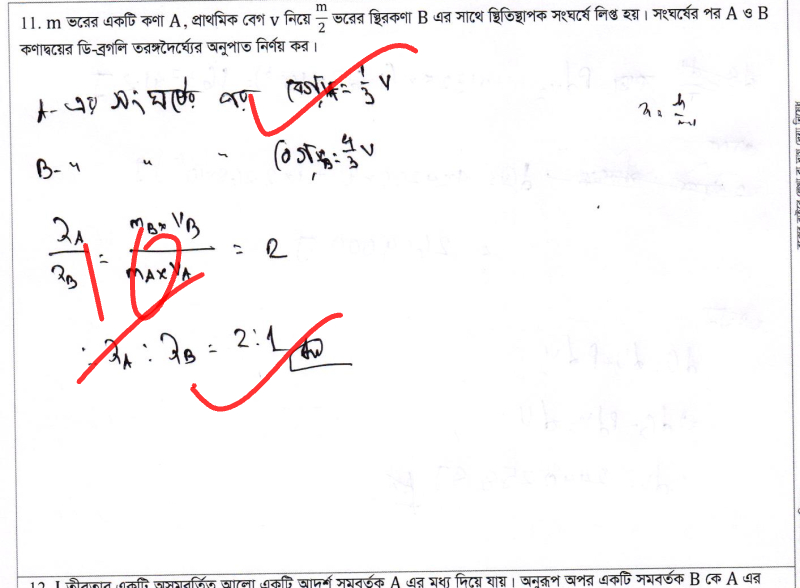 11. m ভরের একটি কণা A, প্রাথমিক বেগ v নিয়ে m/2 ভরের স্থিরকণা B এর সাথে স্থিতিস্থাপক সংঘর্ষে লিপ্ত হয়। সংঘর্ষের পর A ও B
কণাদ্বয়ের ডি-ব্রগলি তরঙ্গদৈর্ঘ্যের অনুপাত নির্ণয় কর।
A- এর সংঘর্ষের পর বেগ, v_A = 1/3 v
λ = h/mv
B- " " " বেগ, v_B = 4/3 v
λ_A/λ_B = m_B × v_B / m_A × v_A = 2
∴ λ_A : λ_B = 2:1 Ans
12. I তীব্রতার একটি অসমবর্তিত আলো একটি আদর্শ সমবর্তক A এর মধ্য দিয়ে যায়। অনুরূপ অপর একটি সমবর্তক B কে A এর